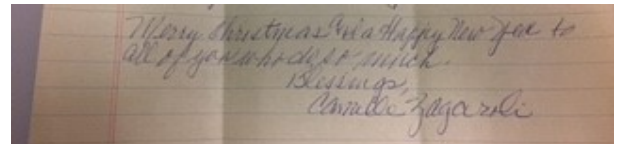 Merry Christmas and a Happy New Year to
all of you who do so much.
Blessings,
Zagaroli